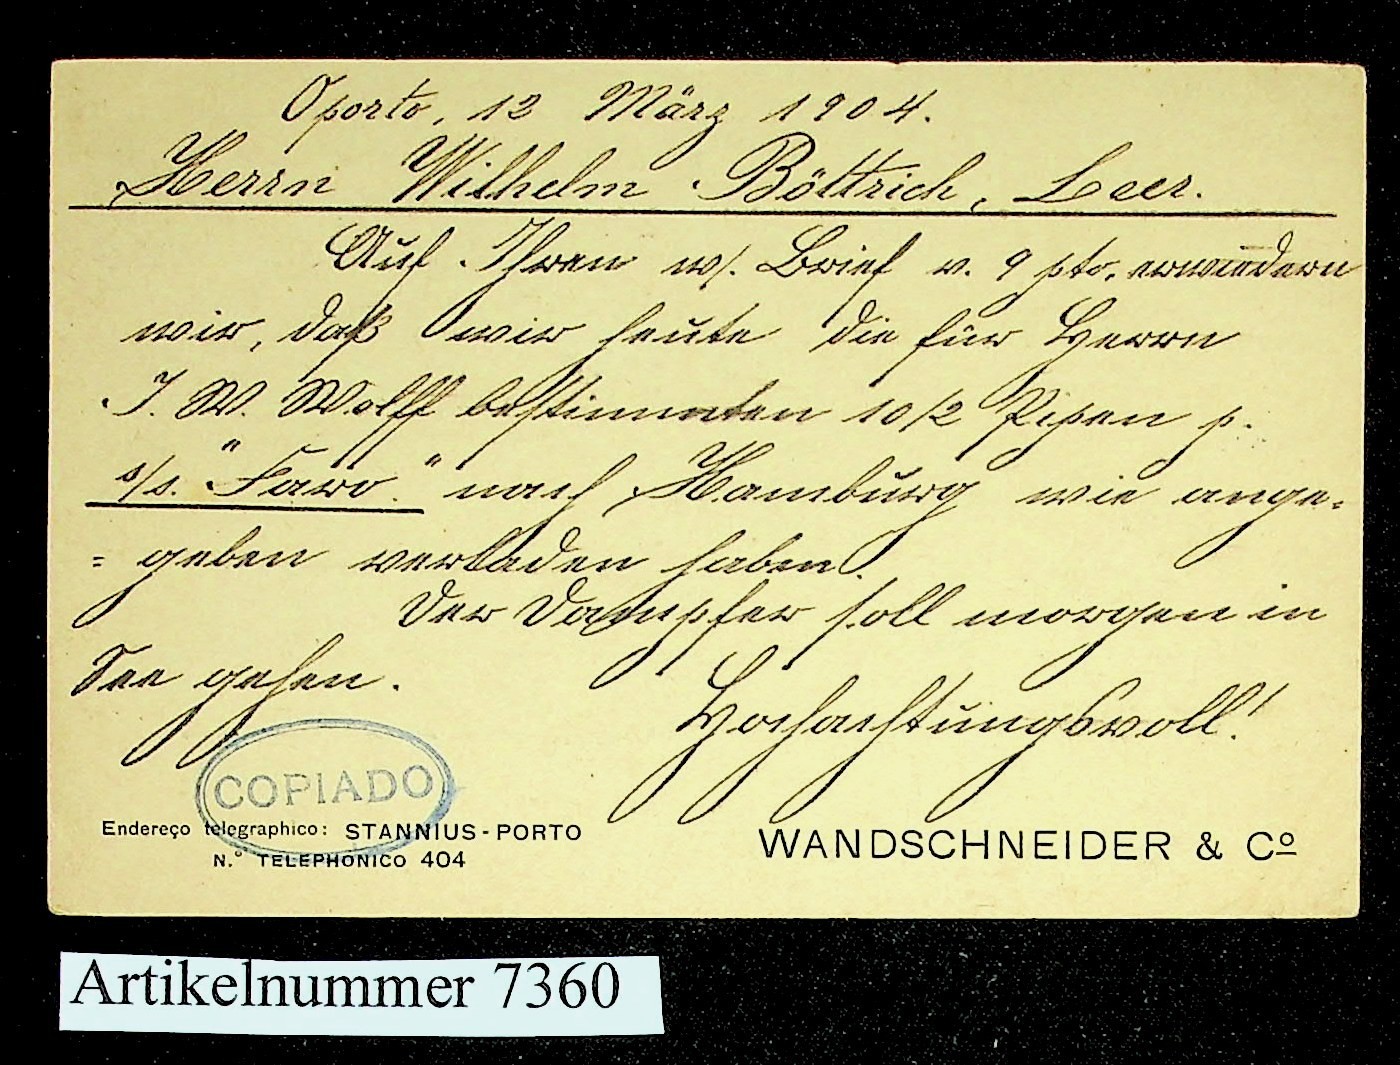 Oporto, 12 März 1904.
Herrn Wilhelm Böttrich, Leer.
Auf Ihren w/. Brief v. 9 pto. erwiedern
wir, daß wir heute die für Herrn
J. W. Wolff bestimmten 10/2 Pipen p.
s/s. "Faro" nach Hamburg wie ange=
= geben verladen haben.
Der Dampfer soll morgen in
See gehen.
Hochachtungsvoll!
COPIADO
Endereço telegraphico: STANNIUS-PORTO
N.º TELEPHONICO 404
WANDSCHNEIDER & Cº
Artikelnummer 7360